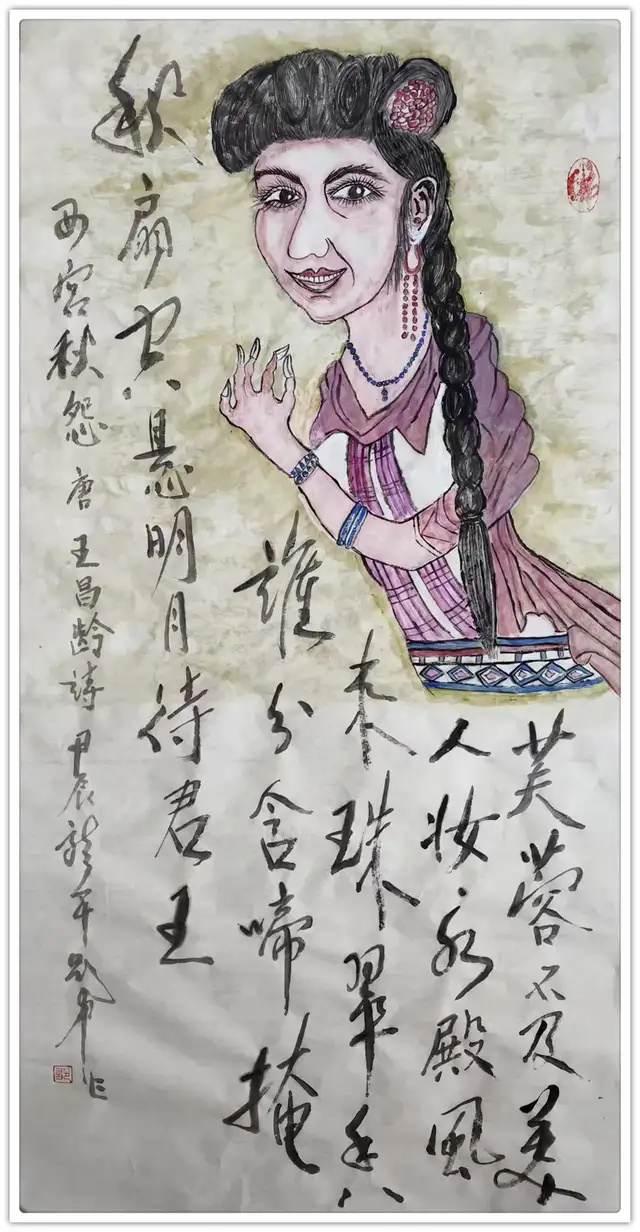 芙蓉不及美
人妆水殿風
来珠翠香
誰分含啼掩
秋扇空悬明月待君王
西宫秋怨 唐 王昌龄詩 甲辰龍年 作